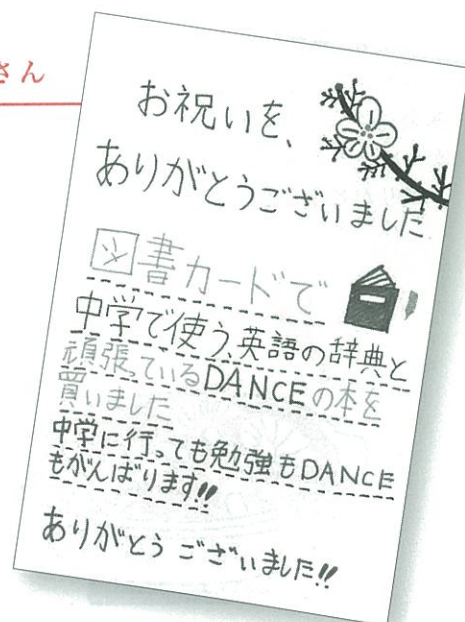 さん
お祝いを、
ありがとうございました
図書カードで
中学で使う、英語の辞典と
頑張っているDANCEの本を
買いました
中学に行っても勉強もDANCE
もがんばります!!
ありがとうございました!!